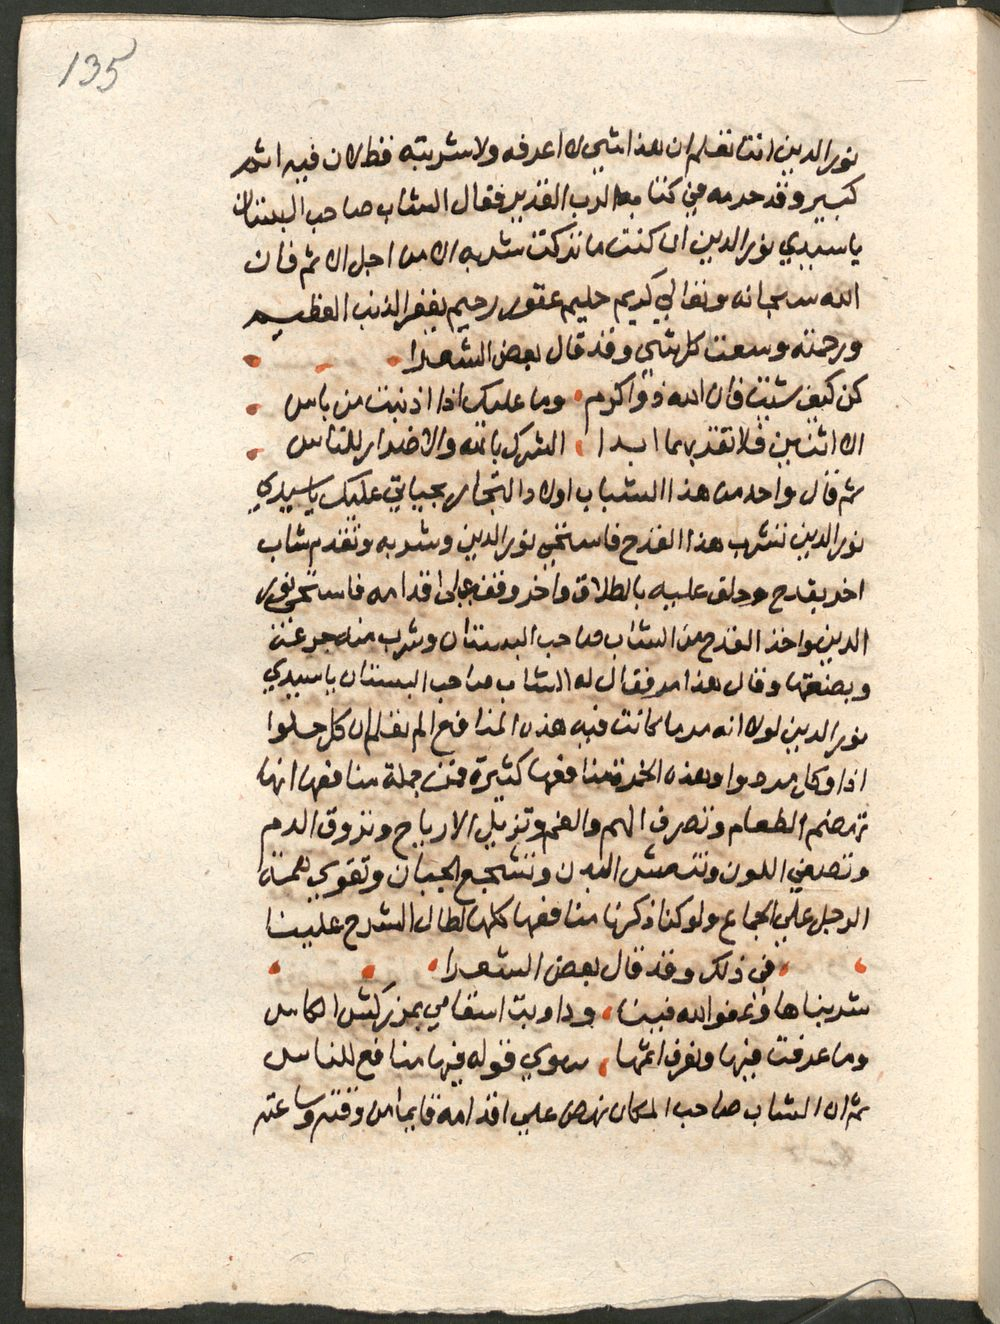 135
نور الدين انت تعلم ان هذا شي لا اعرفه ولا شربته قط لان فيه اثم
كبير وقد حرمه في كتابه الرب القدير فقال الشاب صاحب البستان
يا سيدي نور الدين ان كنت ما تركت شربه الا من اجل الاثم فان
الله سبحانه وتعالي كريم حليم غفور رحيم يغفر الذنب العظيم
ورحمته وسعت كل شي وقد قال بعض الشعرا
كن كيف شيت فان الله ذوا كرم وما عليك اذا اذنبت من باس
الا اثنين فلا تقربهما ابدا الشرك بالله والاضرار للناس
ثم قال واحد من هذا الشباب اولاد التجار بحياتي عليك يا سيدي
نور الدين تشرب هذا القدح فاستحي نور الدين وشربه وتقدم شاب
اخر بقدح وحلف عليه بالطلاق واخر وقف علي اقدامه فاستحي نور
الدين واخذ القدح من الشاب صاحب البستان وشرب منه جرعة
وبصقها وقال هذا مر فقال له الشاب صاحب البستان يا سيدي
نور الدين لولا انه مر ما كانت فيه هذه المنافع الم تعلم ان كل حلوا
اذا وكل مر دوا وهذه الخمرة منافعها كثيرة فمن جملة منافعها انها
تهضم الطعام وتصرف الهم والغم وتزيل الارياح وتروق الدم
وتصفي اللون وتنعش البدن وتشجع الجبان وتقوي همة
الرجل علي الجماع ولو كنا ذكرنا منافعها كلها لطال الشرح علينا
في ذلك وقد قال بعض الشعرا
شربناها وعفو الله فينا وداويت اسقامي بمرتشف الكاس
وما عرفت فيها ونعرف اثمها سوي قوله فيها منافع للناس
ثم ان الشاب صاحب المكان نهض علي اقدامه قايما من وقته وساعته